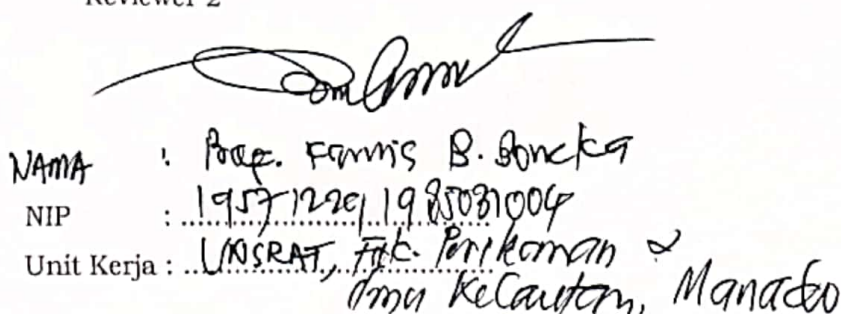 Reviewer 2
NAMA : Prof. Farnis B. Boneka
NIP : 195712291985031004
Unit Kerja : UNSRAT, Fak. Perikanan &
Ilmu Kelautan, Manado